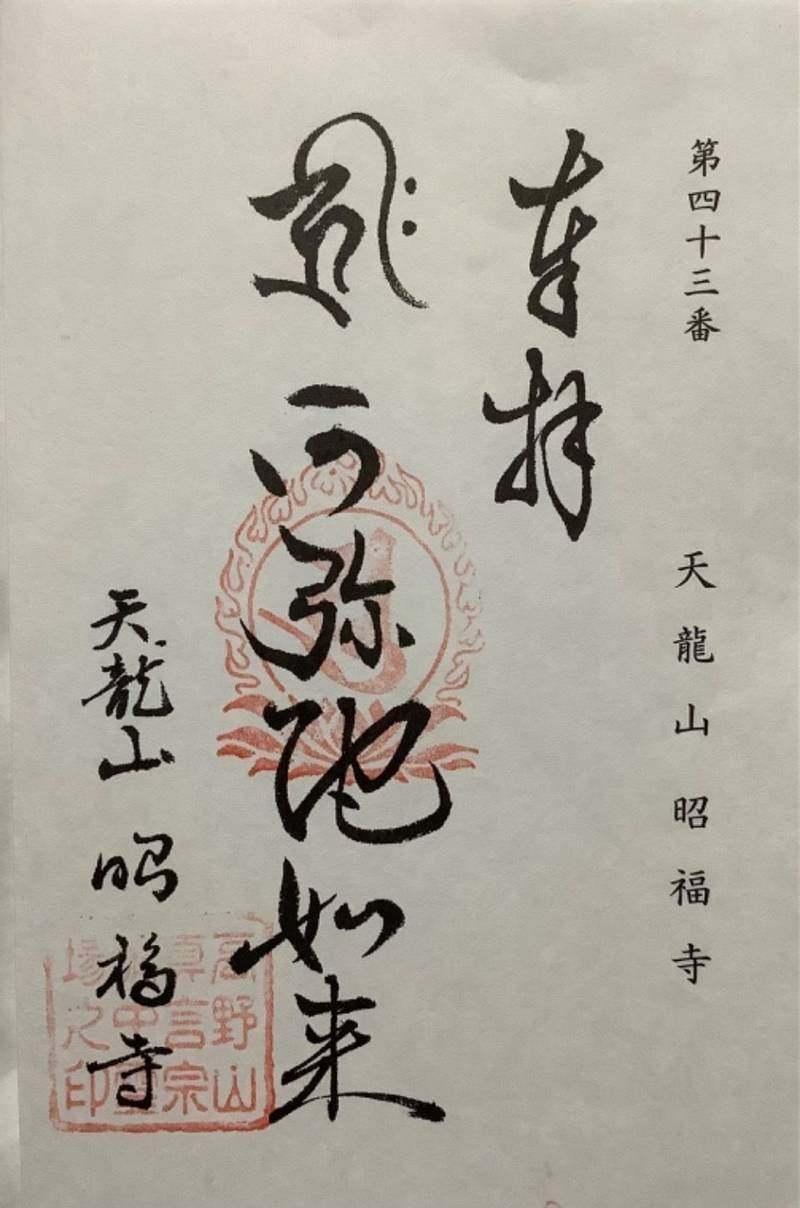 第四十三番　天龍山昭福寺
奉拝
阿弥陀如来
天龍山昭福寺
高野山
真言宗
之印